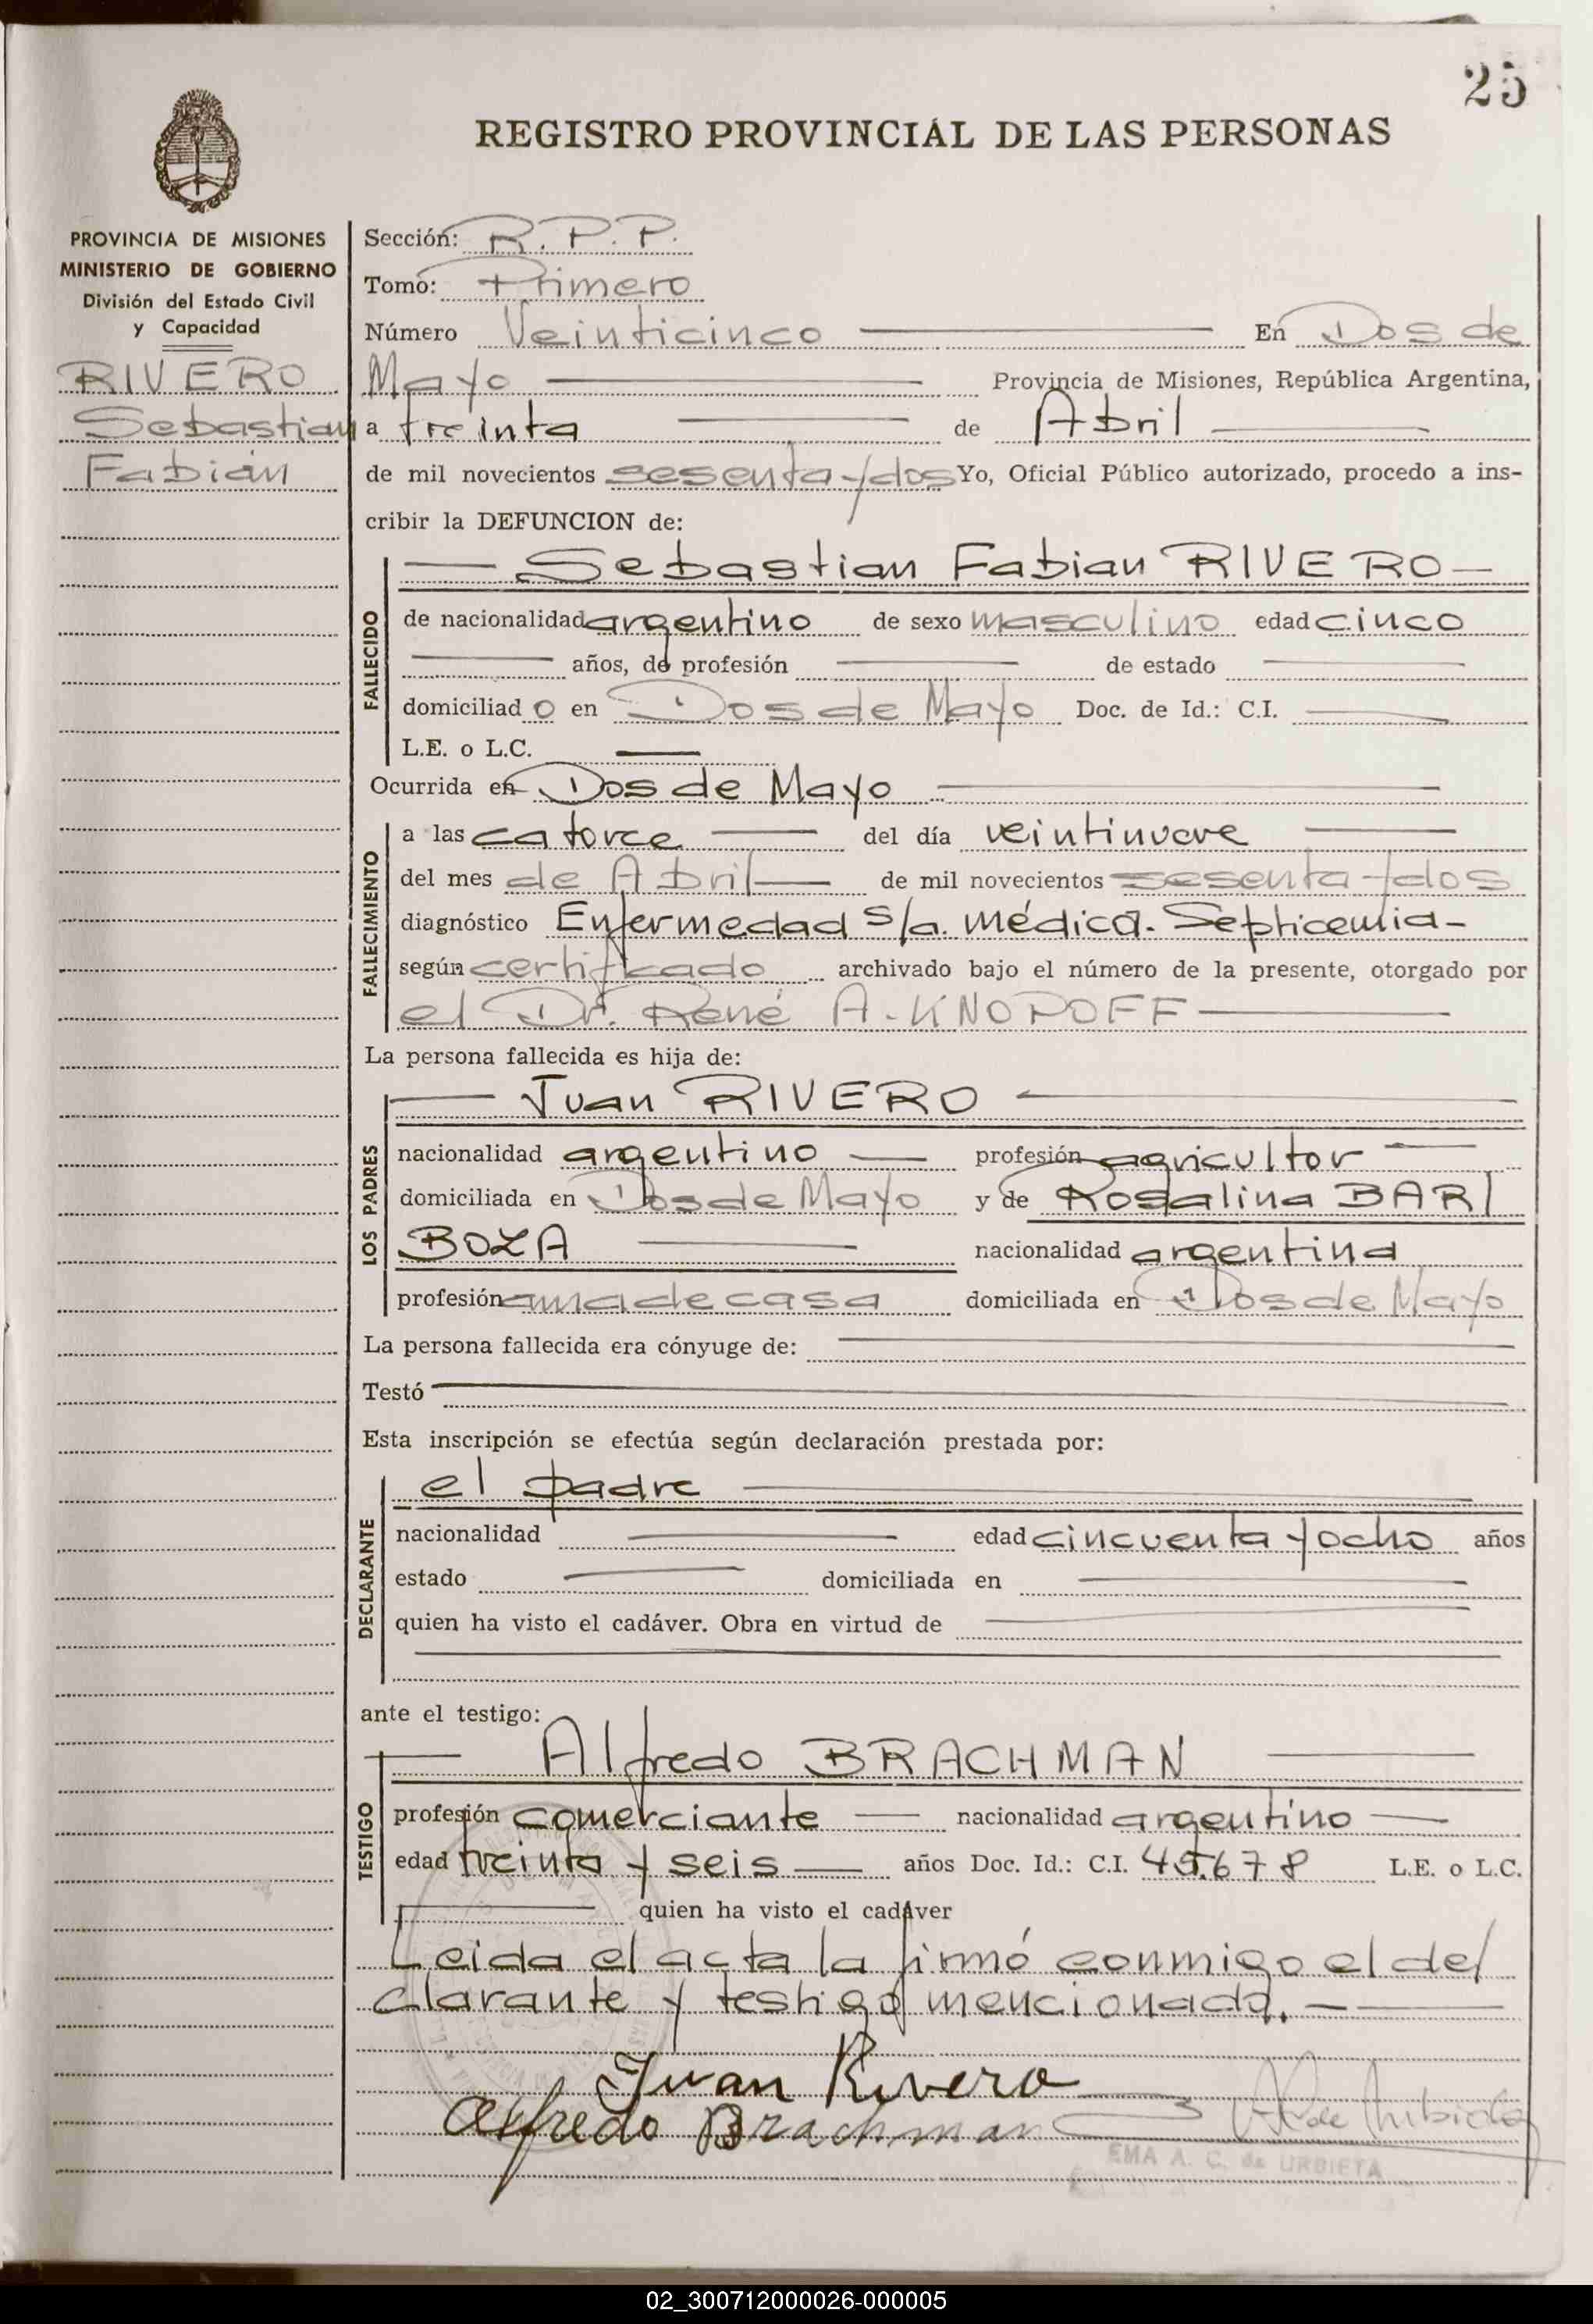 25
REGISTRO PROVINCIAL DE LAS PERSONAS
PROVINCIA DE MISIONES
MINISTERIO DE GOBIERNO
División del Estado Civil
y Capacidad
RIVERO
Sebastian
Fabián
Sección: R. P. P.
Tomo: Primero
Número Veinticinco En Dos de
Mayo Provincia de Misiones, República Argentina,
a treinta de Abril
de mil novecientos sesenta y dos Yo, Oficial Público autorizado, procedo a ins-
cribir la DEFUNCION de:
FALLECIDO
Sebastian Fabian RIVERO
de nacionalidad argentino de sexo masculino edad cinco
años, de profesión de estado
domiciliad o en Dos de Mayo Doc. de Id.: C.I.
L.E. o L.C.
Ocurrida en Dos de Mayo
FALLECIMIENTO
a las catorce del día veintinueve
del mes de Abril de mil novecientos sesenta y dos
diagnóstico Enfermedad s/a. médica. Septicemia-
según certificado archivado bajo el número de la presente, otorgado por
el Dr. René A. KNOPOFF
La persona fallecida es hija de:
LOS PADRES
Juan RIVERO
nacionalidad argentino profesión agricultor
domiciliada en Dos de Mayo y de Rosalina BAR/
BOZA nacionalidad argentina
profesión ama de casa domiciliada en Dos de Mayo
La persona fallecida era cónyuge de:
Testó
Esta inscripción se efectúa según declaración prestada por:
DECLARANTE
el padre
nacionalidad edad cincuenta y ocho años
estado domiciliada en
quien ha visto el cadáver. Obra en virtud de
ante el testigo:
TESTIGO
Alfredo BRACHMAN
profesión comerciante nacionalidad argentino
edad treinta y seis años Doc. Id.: C.I. 45.678 L.E. o L.C.
quien ha visto el cadáver
Leida el acta la firmó conmigo el de/
clarante y testigo mencionado.
Juan Rivero
Alfredo Brachman
EMA A. C. de URBIETA
02_300712000026-000005